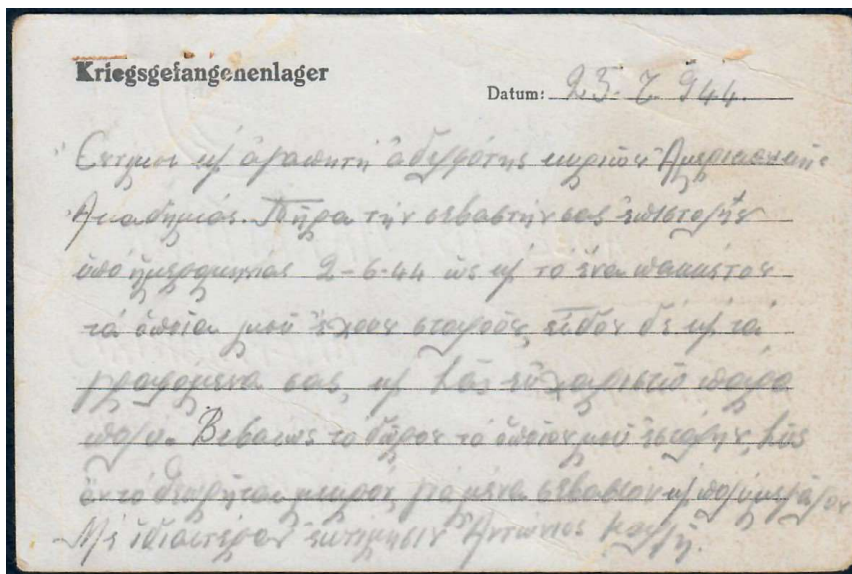 Kriegsgefangenenlager
Datum: 23. 7. 944.
Εντιμοι κ/ ἀγαπητὴ ἀδελφότης κυριῶν Ἀμερικανικῆς
Ακαδημίας. Πῆρα τὴν σεβαστήν σας ἐπιστολὴν
ὑπὸ ἡμερομηνίας 2-6-44 ὡς κ/ το ἕνα πακκέτον
τὰ ὁποῖα μοῦ ἔχουν σταλοῦν, εἶδον δὲ κ/ τὰ
γραφόμενα σας, κ/ Σᾶς εὐχαριστῶ πάρα
πολύ. Βεβαίως το δῶρον τὸ ὁποῖον μοῦ ἐστάλην, Σεῖς
ἂν τὸ θεωρῆται μικρόν, γιὰ μένα σεβαστον κ/ πολὺ μεγάλον
Μὲ ἰδιαιτέραν ἐκτίμησιν Ἀντώνιος